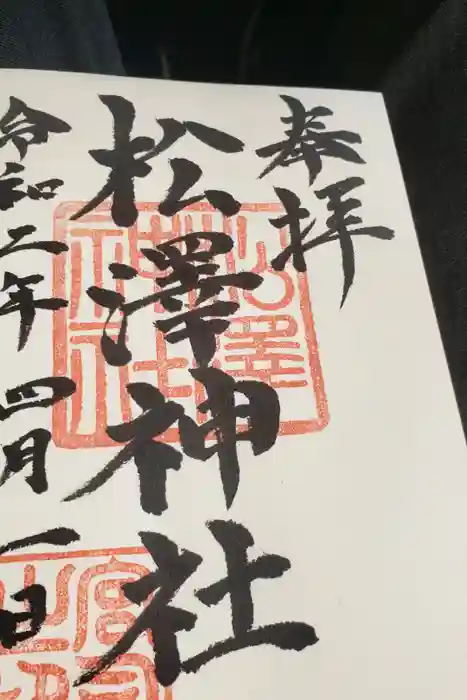 奉拝
松澤神社
令和二年四月一日
松澤
神社